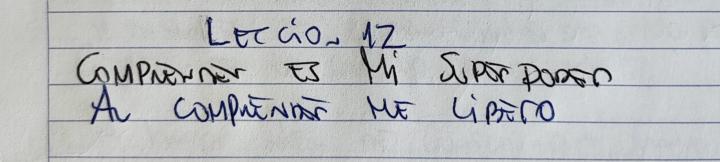 LECCION 12
COMPRENDER ES MI SUPER PODER
AL COMPRENDER ME LIBERO